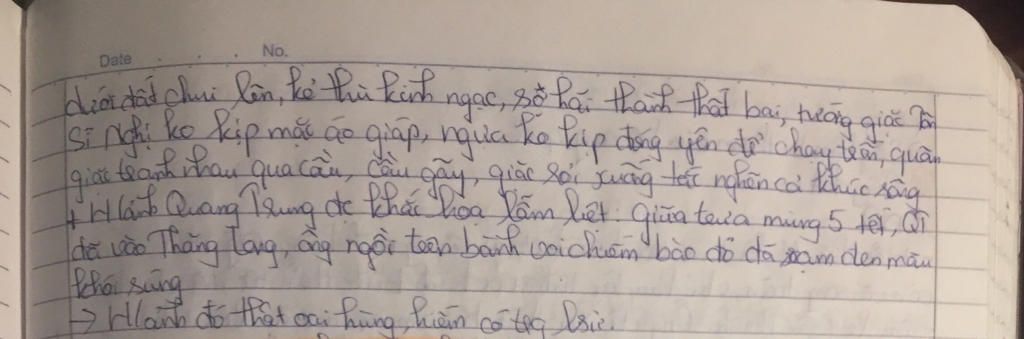 Date No.
dưới đất chui lên, kẻ thù kinh ngạc, sợ hãi thành thất bại, tướng giặc Tôn
Sĩ Nghị ko kịp mặc áo giáp, ngựa ko kịp đóng yên để chạy trốn, quân
giặc tranh nhau qua cầu, cầu gãy, giặc rơi xuống tắc nghẽn cả khúc sông
+ H/ảnh Quang Trung đc khắc họa lẫm liệt. Giữa trưa mùng 5 tết,
đã vào Thăng Long, ông ngồi trên bành voi chiến bào đỏ đã xạm đen màu
khói súng
→ H/ảnh đó thật oai hùng, hiếm có trg lsử.